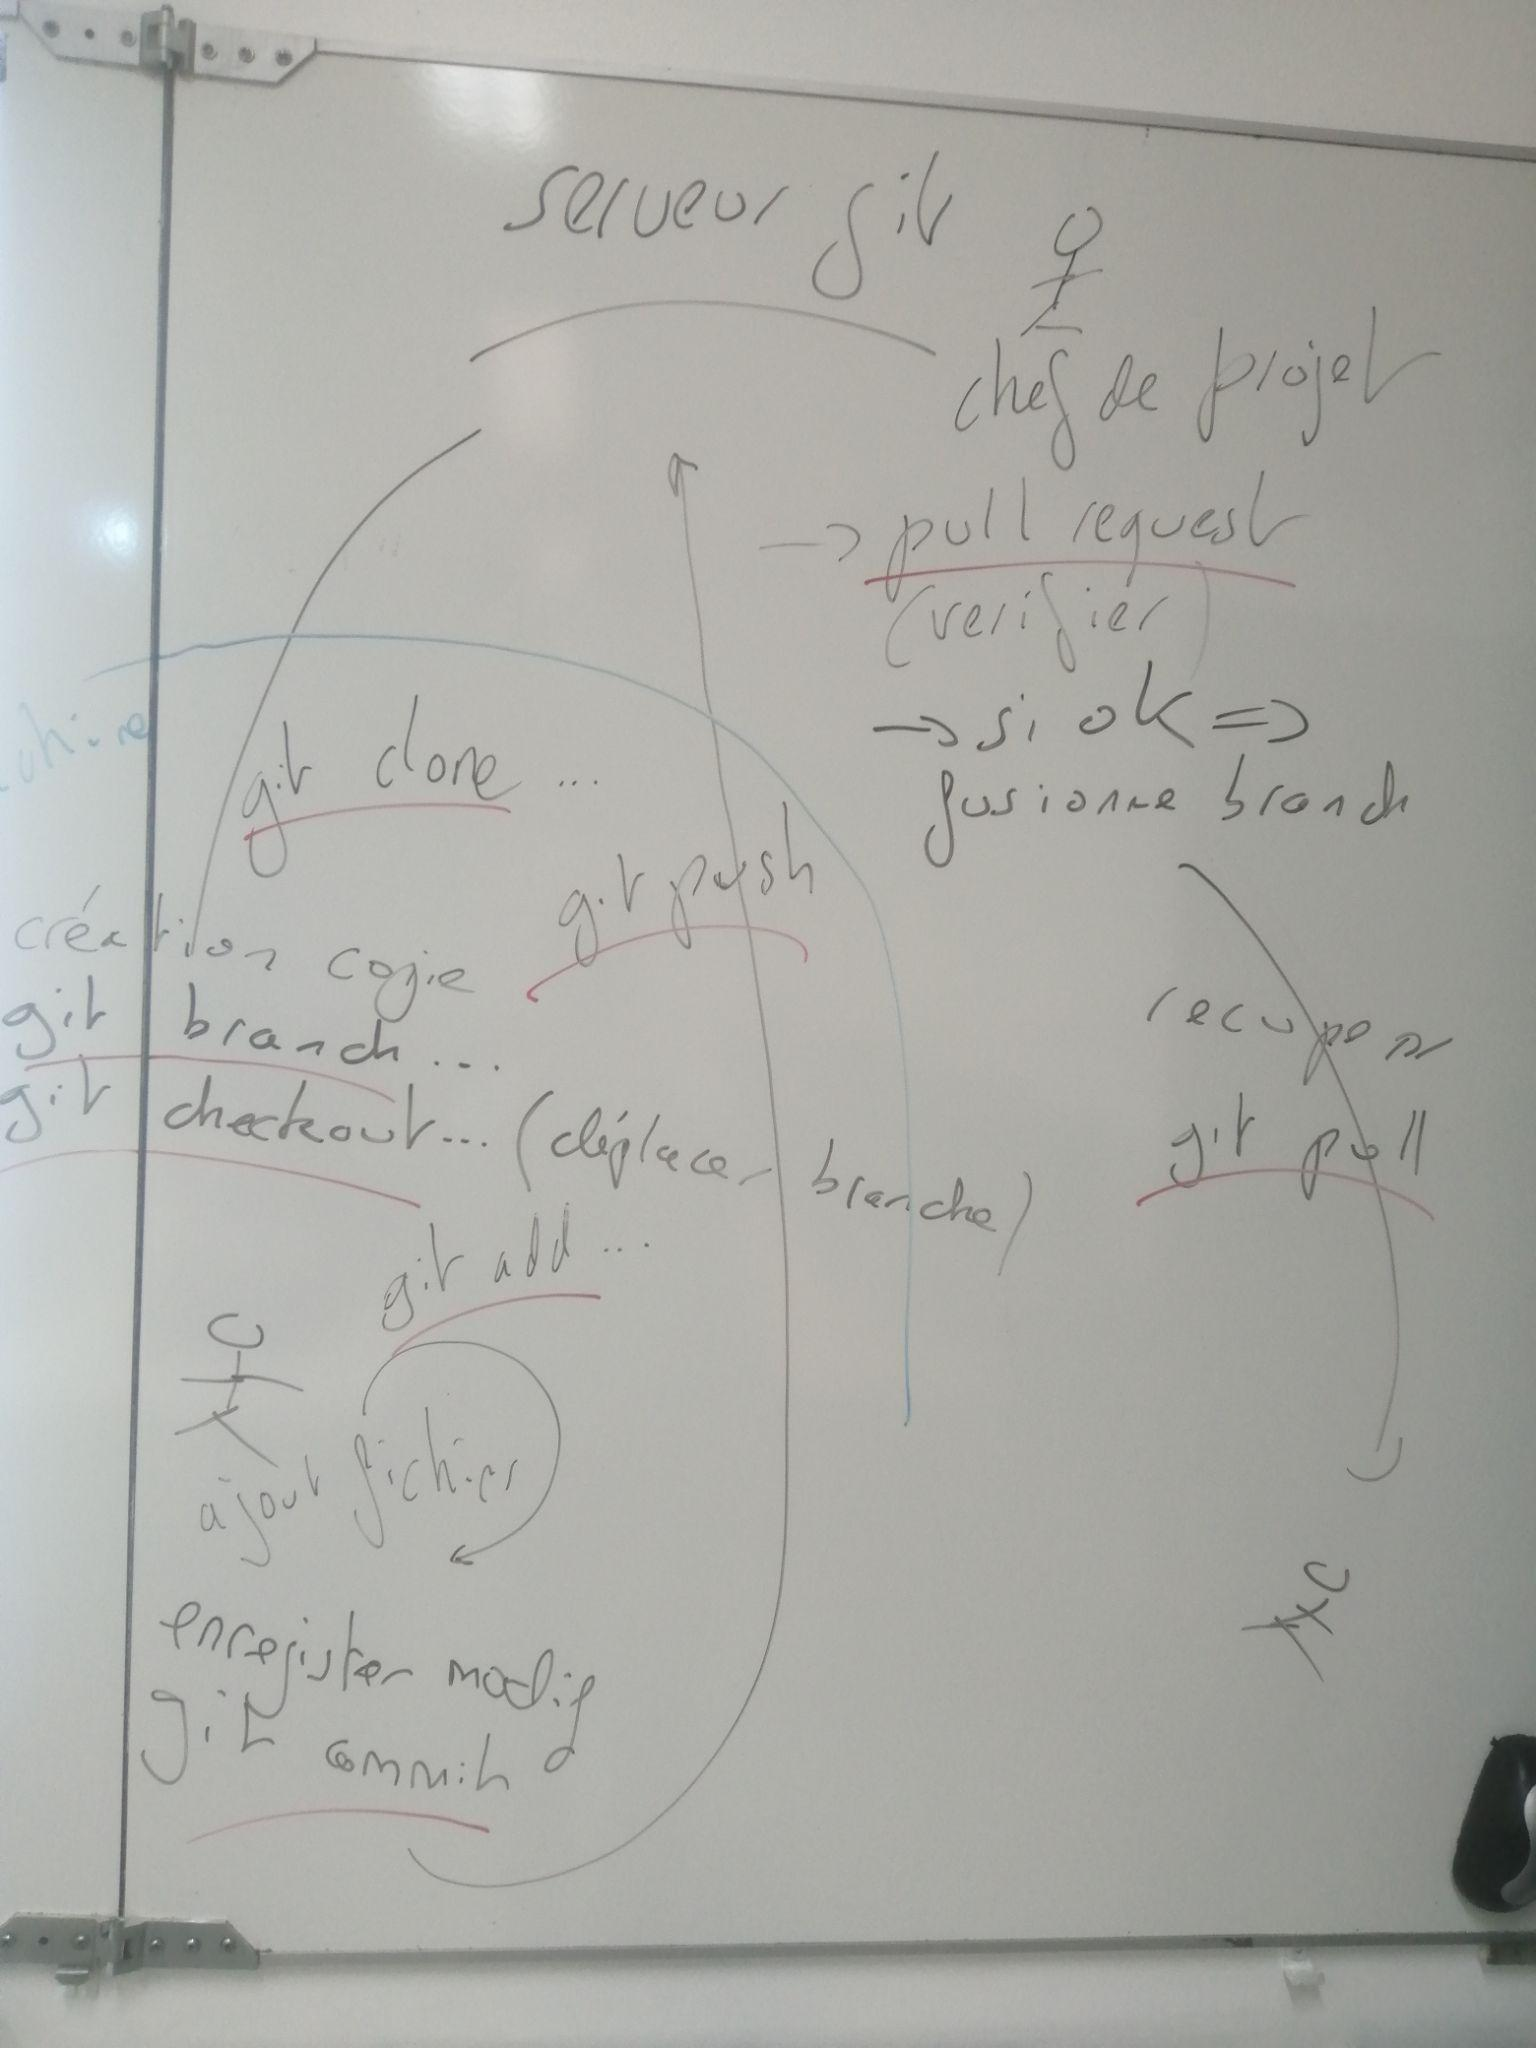 serveur git
chef de projet
-> pull request
(verifier)
-> si ok =>
fusionne branch
git clone ...
git push
création copie
git branch ...
git checkout... (déplacer branche)
recuperer
git pull
git add ...
ajout fichier
enregister modif
git commit